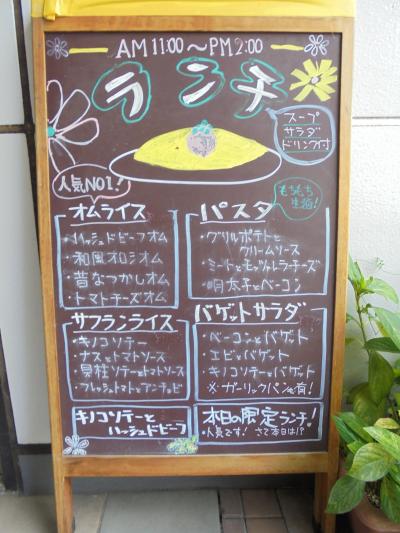 AM 11:00～PM 2:00
ランチ
スープ
サラダ
ドリンク付
人気NO1!
もちもち
生麺!
オムライス
・ハッシュドビーフオム
・和風オロシオム
・昔なつかしオム
・トマトチーズオム
パスタ
・グリルポテトと
クリームソース
・ミートとモッツァレラチーズ
・明太子とベーコン
サフランライス
・キノコソテー
・ナスとトマトソース
・貝柱ソテーとトマトソース
・フレッシュトマトとアンチョビ
バゲットサラダ
・ベーコンとバゲット
・エビとバゲット
・キノコソテーとバゲット
※ガーリックパンも有!
キノコソテーと
ハッシュドビーフ
本日の限定ランチ!
人気です! さて本日は!?